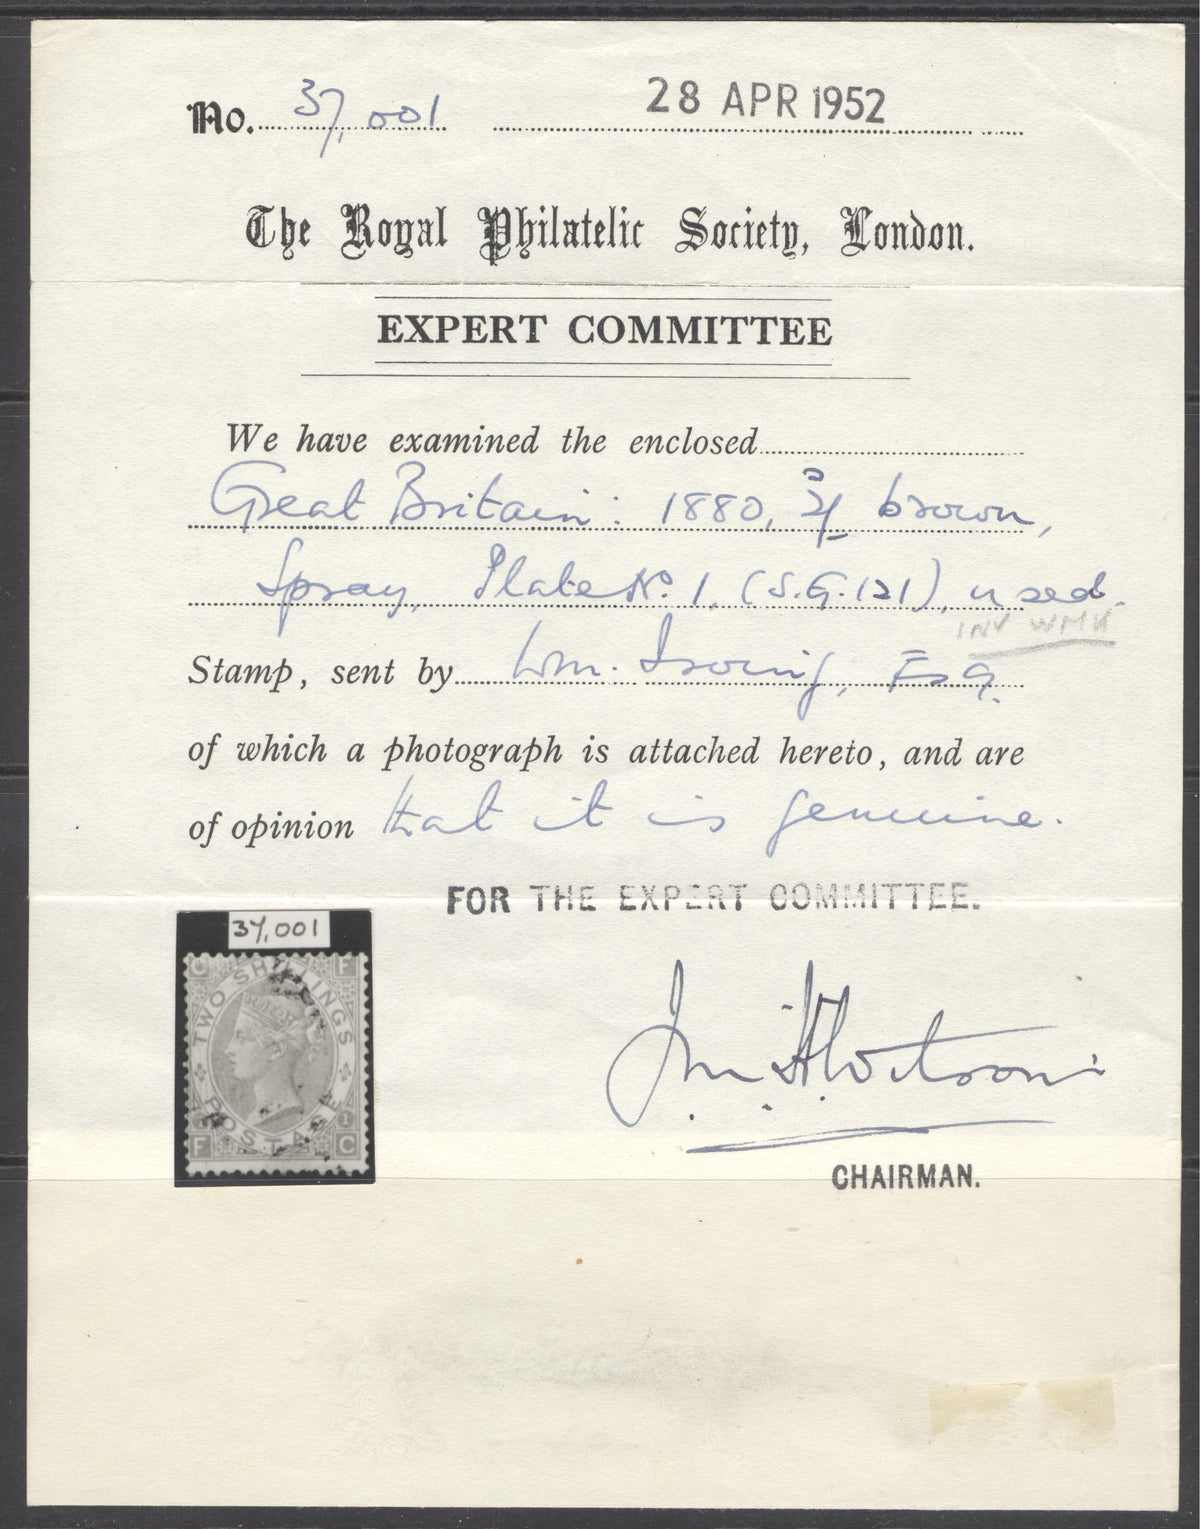 No. 37,001 28 APR 1952
The Royal Philatelic Society, London.
EXPERT COMMITTEE
We have examined the enclosed
Great Britain: 1880, 2/- brown,
Spray, Plate No. 1, (S.G. 121), used.
INV WMK
Stamp, sent by Wm. Irving, Esq.
of which a photograph is attached hereto, and are
of opinion that it is genuine.
FOR THE EXPERT COMMITTEE.
37,001
C F
TWO SHILLINGS
POSTAGE
1 1
F C
CHAIRMAN.